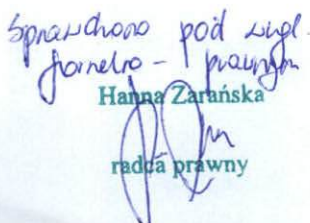 Sprawdzono pod wzgl.
formalno - prawnym
Hanna Zarańska
radca prawny